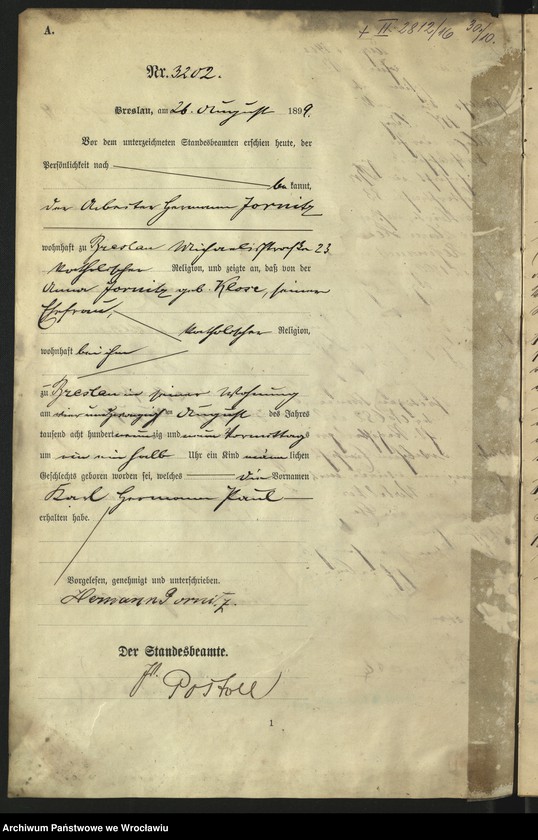 A.
+ II 2812/16 30/10.
Nr. 3202.
Breslau, am 26. August 1899.
Vor dem unterzeichneten Standesbeamten erschien heute, der
Persönlichkeit nach
be kannt,
der Arbeiter Hermann Jornitz
wohnhaft zu Breslau Michaelisstraße 23
katholischer Religion, und zeigte an, daß von der
Anna Jornitz geb. Klose, seiner
Ehefrau,
katholischer Religion,
wohnhaft bei ihm
zu Breslau in seiner Wohnung
am vier und zwanzigsten August des Jahres
tausend acht hundert neunzig und neun Vormittags
um ein halb Uhr ein Kind männlichen
Geschlechts geboren worden sei, welches die Vornamen
Karl Hermann Paul
erhalten habe.
Vorgelesen, genehmigt und unterschrieben.
Hermann Jornitz.
Der Standesbeamte.
Postell
1
Archiwum Państwowe we Wrocławiu